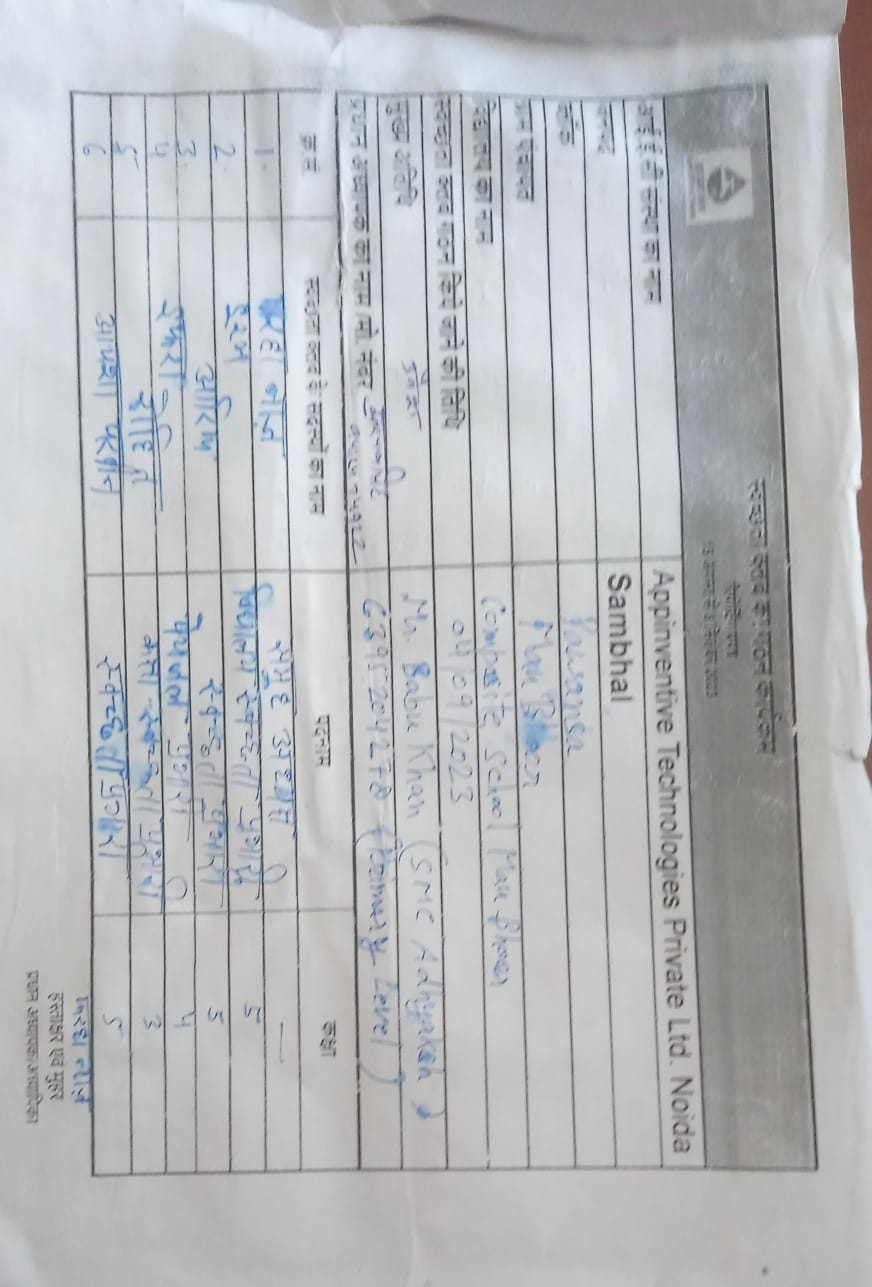 स्वच्छता क्लब का गठन कार्यक्रम
रिपोर्टिंग प्रपत्र
आई ई सी संस्था का नाम Appinventive Technologies Private Ltd. Noida
जनपद Sambhal
ब्लॉक Pawansa
ग्राम पंचायत Mau Bhoor
विद्यालय का नाम Composite School Mau Bhoor
स्वच्छता क्लब गठन किये जाने की तिथि 04/09/2023
मुख्य अतिथि Mr. Babu Khan (SMC Adhyaksh)
प्रधान अध्यापक का नाम /मो. नंबर 6395204278 (Primary Level)
क्र.सं. स्वच्छता क्लब के सदस्यों का नाम पदनाम कक्षा
1. फरहा नाज़ समूह अध्यक्ष —
2. विद्यालय स्वच्छता प्रभारी 5
3. स्वच्छता प्रभारी 5
4 पेयजल प्रभारी 4
5 कक्षा स्वच्छता प्रभारी 3
6 स्वच्छता प्रभारी 5
फरहा नाज़
हस्ताक्षर एवं मुहर
प्रधान अध्यापक/अध्यापिका